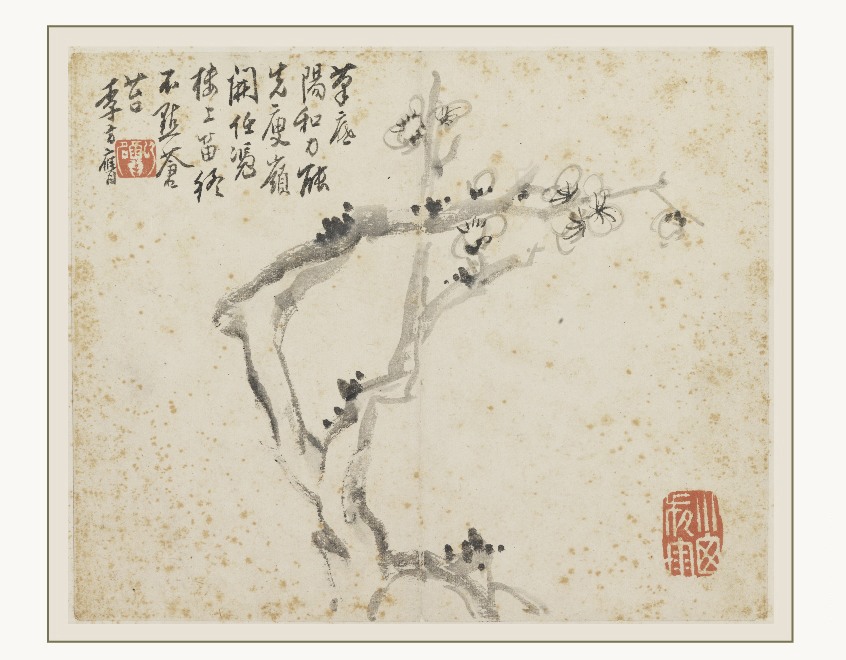 筆底
陽和力能
先庾嶺
開任憑
樓上笛終
不點蒼
苔
李方膺